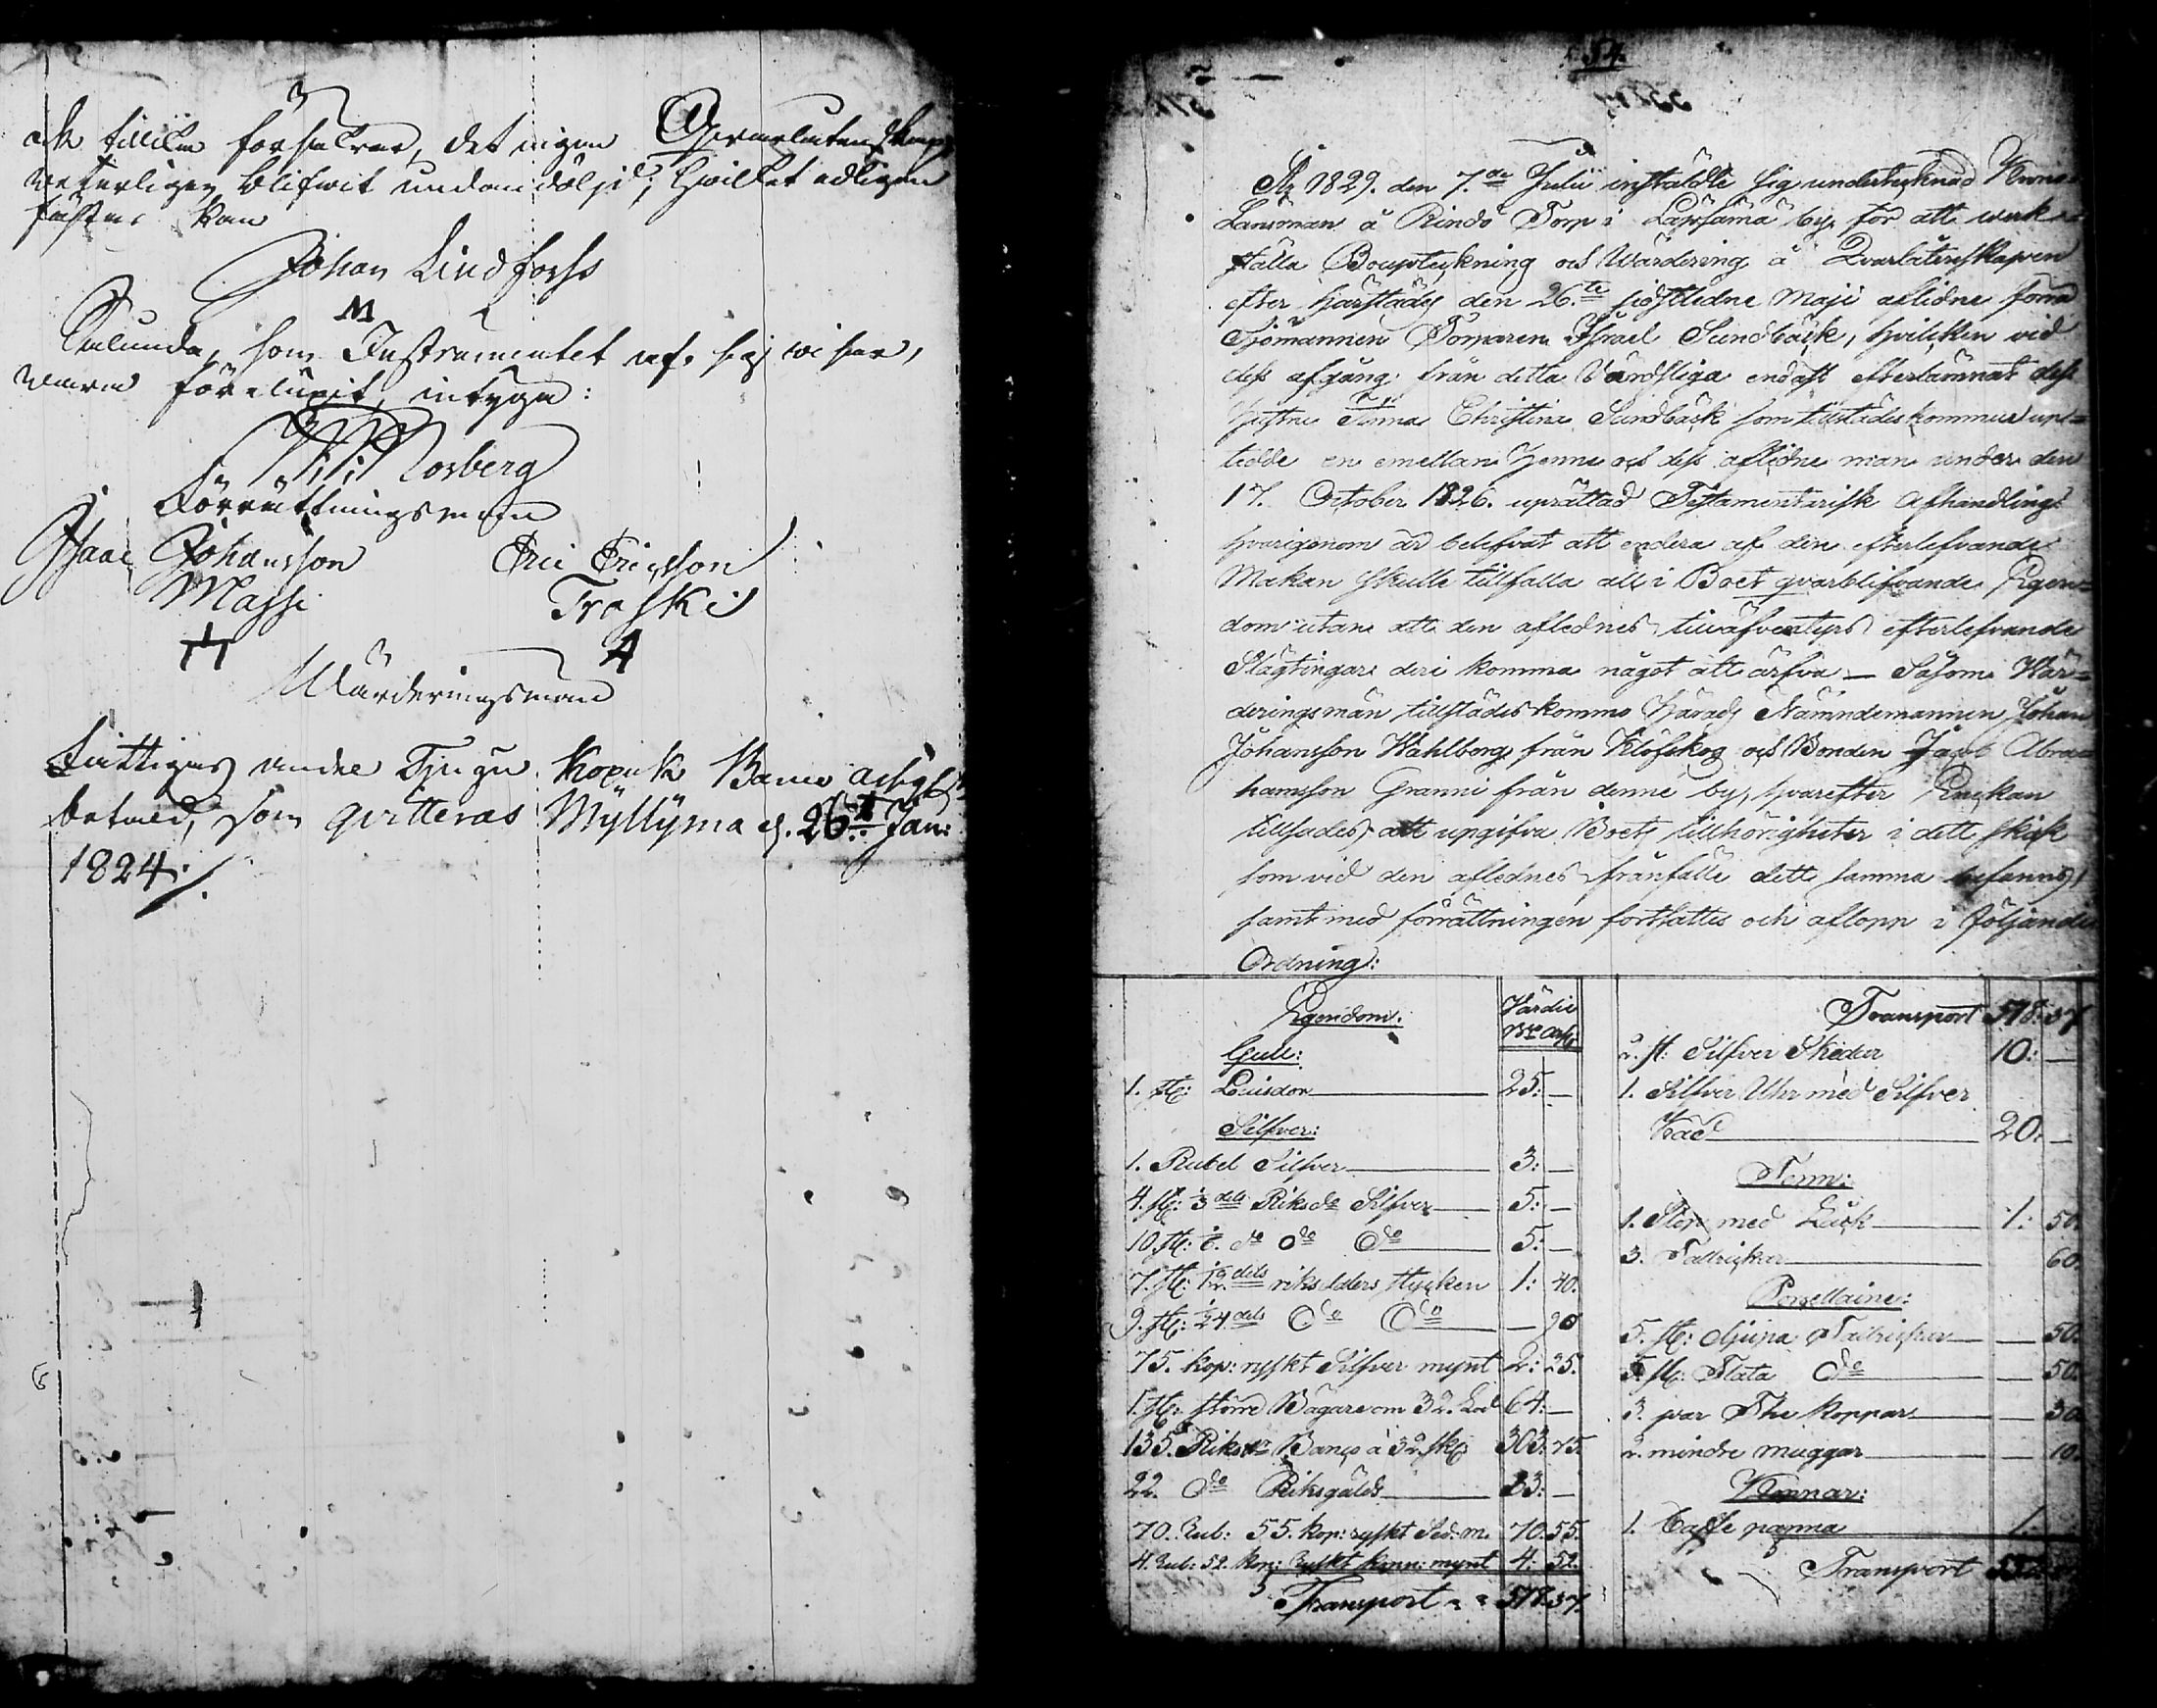 och tillika försäkrar, det ingen Qvarlåtenskap
veterligen blifwit undandöljd, hvilket edligen
fästas kan
Johan Lindforss
M
Sålunda, som Instrumentet af sig wisar,
vara förelupit, intyga:
Norberg
Förrättningsman
Isaac Johansson Eric Ericsson
Massi Traski
Wärderingsman
Fattiges andel Tjugu Kopek Banco Assignt
betald, som qvitteras Myllymä d. 26t Jan:
1824.
54.
År 1829. den 7.de Julii instäldte sig undertecknad Krono
Länsman å Rindö Torp i Lapsämä by, för att werk-
ställa Bouptekning och Wärdering å Qvarlåtenskapen
efter härstädes den 26.te sidstledne Maji aflidne förra
Sjömannen Torparen Israel Sundbäck, hvilcken vid
dess afgång från detta Verdsliga endast efterlämnat dess
Hustru Anna Christina Sundbäck som tillstädeskommen upp-
tedde en emellan Henne och dess aflidne man under den
17. October 1826. uprättad Testamentarisk afhandling
hvarigenom är belefvat att endera af den efterlefvande
Makan skulle tillfalla all i Boet qvarblifvande Egen-
dom utan att den aflednes tilläfventyrs efterlefvande
Slägtingar deri komma något att ärfva — Såsom Wär-
deringsmän tillstädeskommo Härads Nämndemannen Johan
Johansson Wahlberg från Klöfskog och Bonden Jacob Abra
hamsson Granni från denne by, hvarefter Enckan
tillsades att upgifva Boets tillhörigheter i dett skick
som vid den aflednes frånfälle dett samma befanns,
samt med förrättningen fortsattes och aflopp i följande
Ordning:
Egendom. Värdie
Bco Ass
Gull:
1. st: Louisdor 25: —
Silfver:
1. Rubel Silfver 3: —
4. st: 1/3 dels Riksdr Silfver 5: —
10 st: 1/6 do do do 5: —
7. st: 1/12 dels riksdalers stycken 1: 40.
9. st: 1/24 dels do do — 90
75. kop: ryskt Silfver mynt 2: 25.
1. st: större Bägare om 32. Lod 64: —
135. Riksdr Banco à 32. sk 303: 75.
22. do Riksgälds 33: —
70. Rub: 55. kop: ryskt Sed: m. 70. 55.
4. Rub: 52. kop: Ryskt kopp: mynt 4: 52.
Transport 518. 37.
Transport 518: 37
2. st: Silfver Skedar 10: —
1. Silfver Uhr med Silfver
Ked 20. —
Tenn:
1. Stop med Låck 1: 50.
3. Tallrickar 60.
Porsellaine:
5. st: djupa Tallrickar — 50.
5. st: Flata do — 50.
3. par The koppar — 30
2. mindre muggar — 10.
Kannar:
1. Caffe panna 1.
Transport